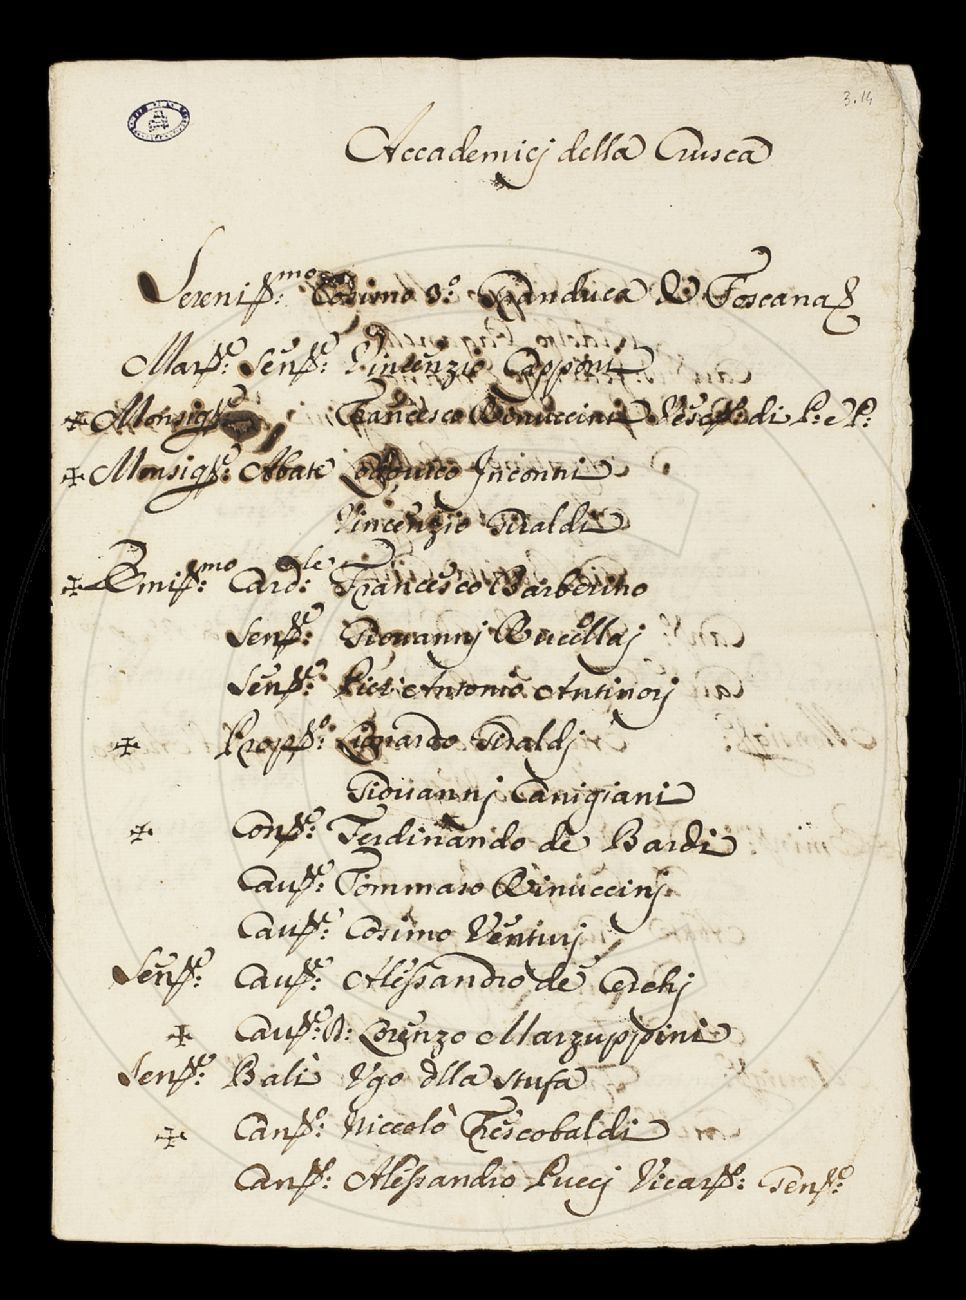 3.14
Accademici della Crusca
Sereniss:mo Cosimo 3:o Granduca di Toscana
Mar.se Sen.re Vincenzio Capponi
✠ Monsig.re Francesco Rinuccini Vesc.o di P: e P:
✠ Monsig.re Abate Lodovico Incontri
Vincenzio Giraldi
✠ Emiss:mo Card:le Francesco Barberino
Sen.re Giovannj Rucellaj
Sen.re Pier Antonio Antinorj
✠ Prop.o Lionardo Giraldj
Giovannj Canigiani
✠ Con.e Ferdinando de Bardi
Cau.re Tommaso Rinuccinj
Cau.re Cosimo Venturj
Sen.re Cau.re Alessandro de Cerchj
✠ Cau.re D: Lorenzo Marzuppini
Sen.re Balì Vgo dlla Stufa
✠ Can.o Niccolò Frescobaldi
Can.o Alessandro Puccj Vicar.o Gen.le